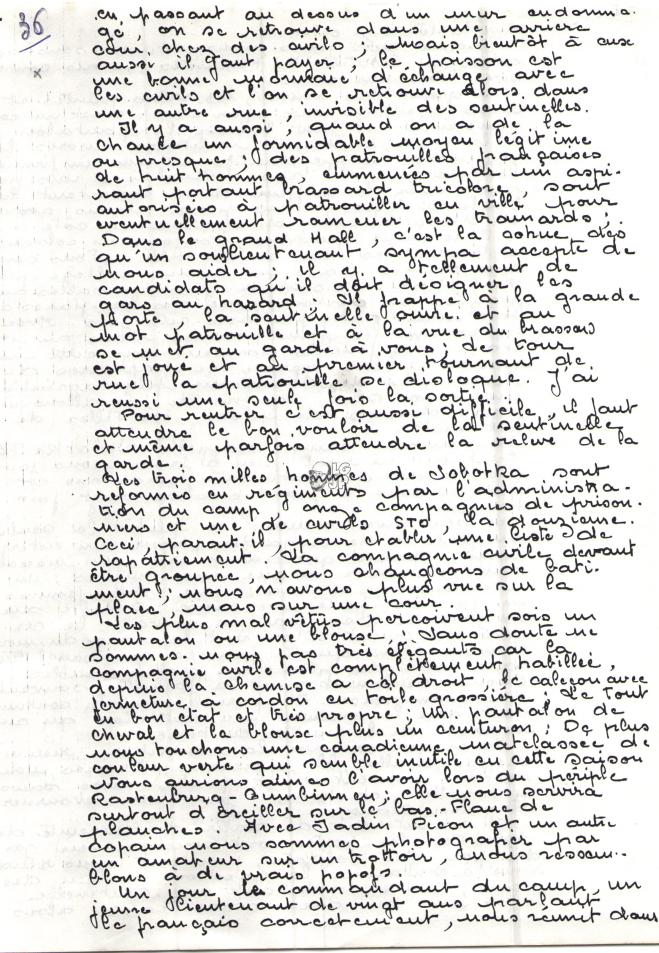 36
x
en passant au dessus d'un mur endomma-
gé, on se retrouve dans une arrière
cour chez des civils ; mais bientôt à eux
aussi il faut payer ; le poisson est
une bonne monnaie d'échange avec
les civils et l'on se retrouve alors dans
une autre rue, invisible des sentinelles.
Il y a aussi, quand on a de la
chance un formidable moyen légitime
ou presque ; des patrouilles françaises
de huit hommes, emmenées par un aspi-
rant portant brassard tricolore, sont
autorisées à patrouiller en ville pour
eventuellement ramener les trainards ;
Dans le grand Hall, c'est la cohue dès
qu'un souslieutenant sympa accepte de
nous aider ; il y a tellement de
candidats qu'il doit désigner les
gars au hasard. Il frappe à la grande
porte, la sentinelle ouvre et au
mot patrouille et à la vue du brassard
se met au garde à vous ; de tour
est joué et au premier tournant de
rue la patrouille se disloque. J'ai
réussi une seule fois la sortie.
Pour rentrer c'est aussi difficile, il faut
attendre le bon vouloir de la sentinelle
et même parfois attendre la relève de la
garde.
Les trois milles hommes de Sobotka sont
reformés en régiments par l'administra-
tion du camp, onze compagnies de prison-
niers et une de civils STO, la douzième.
Ceci, parait-il, pour établir une liste de
rapatriement. La compagnie civile devant
être groupée, nous changeons de bati-
ment ; nous n'avons plus vue sur la
place, mais sur une cour.
Les plus mal vêtus perçoivent sois un
pantalon ou une blouse ; Sans doute ne
sommes-nous pas très élégants car la
compagnie civile est complètement habillée,
depuis la chemise à col droit, le caleçon avec
fermeture à cordon en toile grossière ; Le tout
en bon état et très propre ; un pantalon de
cheval et la blouse plus un ceinturon ; De plus
nous touchons une canadienne matelassée de
couleur verte qui semble inutile en cette saison
Nous aurions aimés l'avoir lors du périple
Rastenburg-Gumbinnen ; elle nous servira
surtout d'oreiller sur le bas-flanc de
planches. Avec Jadin Picou et un autre
copain nous sommes photographer par
un amateur sur un trottoir, nous ressem-
blons à de vrais popofs.
Un jour le commandant du camp, un
jeune lieutenant de vingt ans parlant
le français correctement, nous réunit dans